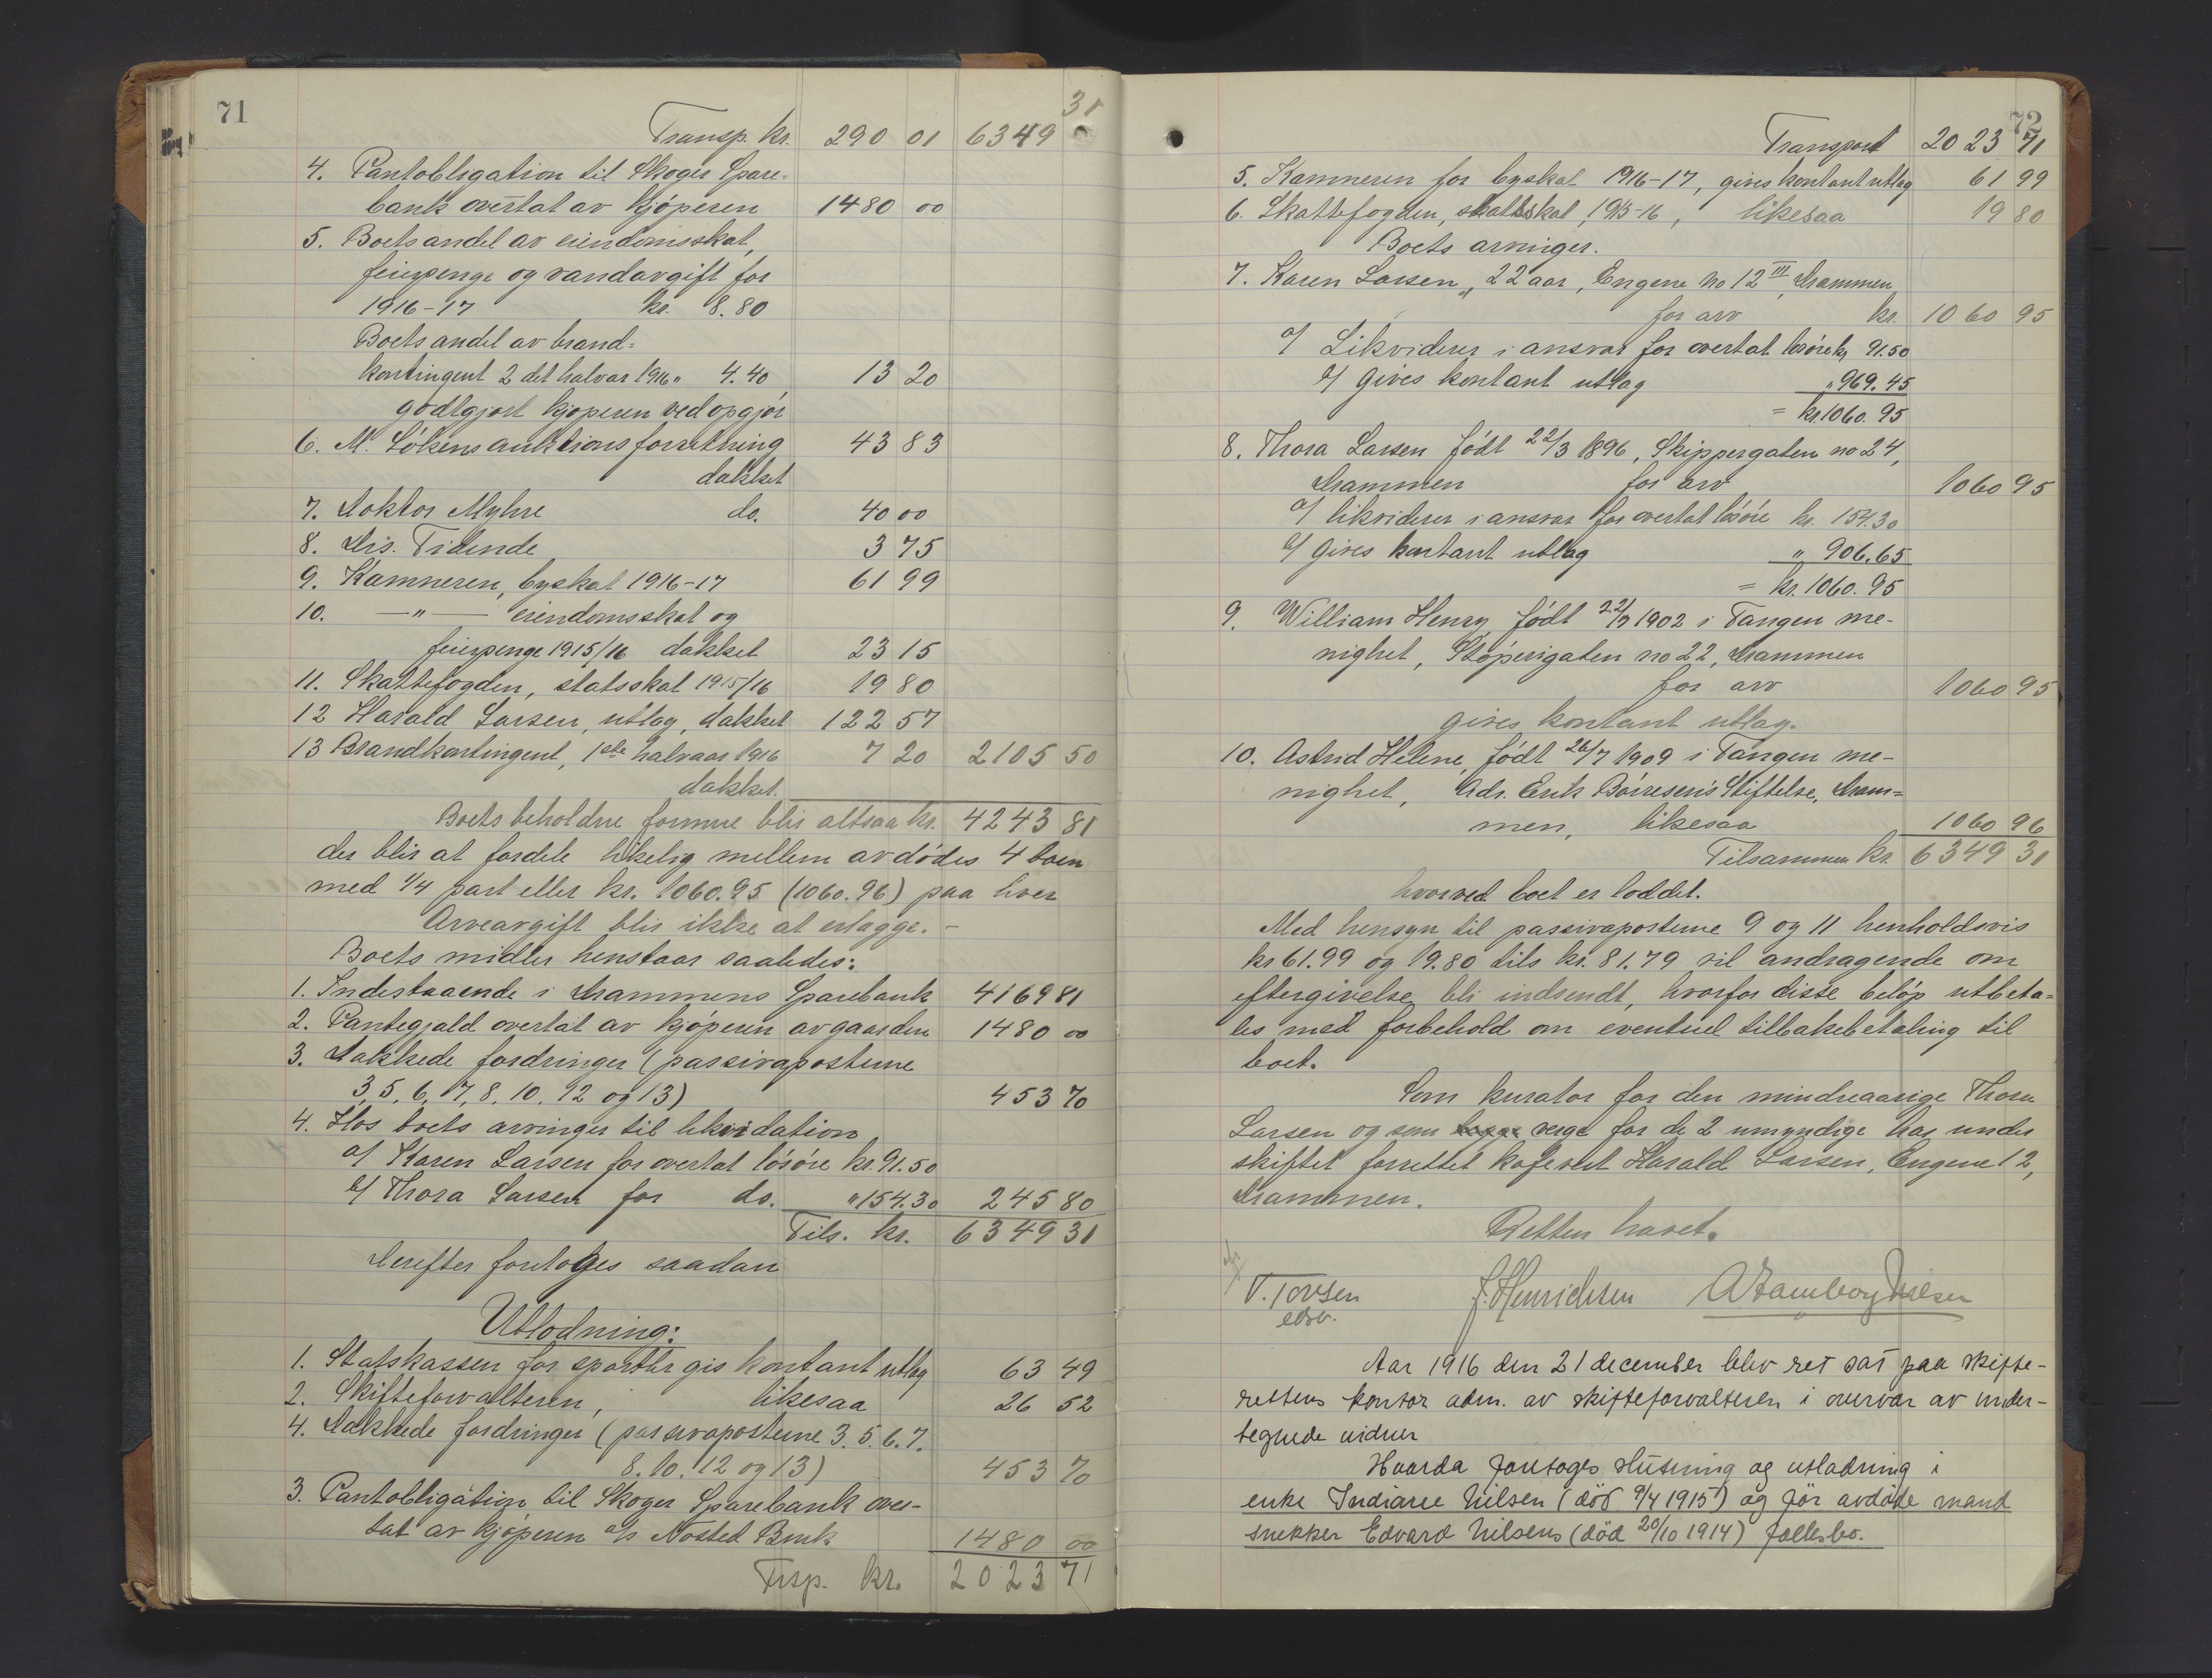 71
31
Transp. kr. 290 01 6349
4. Pantobligation til Skoger Spare=
bank overtat av kjøperen 1480 00
5. Boets andel av eiendomsskat,
feierpenge og vandavgift for
1916-17 kr. 8.80
Boets andel av brand=
kontingent 2 det halvar 1916 " 4.40 13 20
godtgjort kjøperen ved opgjør
6. M. Løkens auktionsforretning 43 83
dækket
7. Doktor Myhre do. 40 00
8. Drs. Tidende 3 75
9. Kæmneren, byskat 1916-17 61 99
10. —"— eiendomsskat og
feierpenge 1915/16 dækket 23 15
11. Skattefogden, statsskat 1915/16 19 80
12 Harald Larsen, utlæg, dækket 122 57
13 Brandkontingent, 1ste halvaar 1916 7 20 2105 50
dækket.
Boets beholdne formue blir altsaa kr. 4243 81
der blir at fordele likelig mellem avdødes 4 barn
med 1/4 part eller kr. 1060.95 (1060.96) paa hver
Arveavgift blir ikke at erlægge. -
Boets midler henstaar saaledes:
1. Indestaaende i Drammens Sparebank 4169 81
2. Pantegjæld overtat av kjøperen av gaarden 1480 00
3. Dækkede fordringer (passivaposterne
3, 5, 6, 7, 8, 10, 12 og 13) 453 70
4. Hos boets arvinger til likvidation
a/ Karen Larsen for overtat løsøre kr. 91.50
b/ Thora Larsen for do. " 154.30 245 80
Tils. kr. 6349 31
Derefter foretoges saadan
Utlodning:
1. Statskassen for sportler gis kontant utlæg 63 49
2. Skifteforvalteren, likesaa 26 52
4. Dækkede fordringer (passivaposterne 3. 5. 6. 7.
8. 10. 12 og 13) 453 70
3. Pantobligation til Skoger Sparebank over-
tat av kjøperen a/s Nøsted Bruk 1480 00
Trsp. kr. 2023 71
72
Transport 2023 71
5. Kæmneren for byskat 1916-17, gives kontant utlæg 61 99
6. Skattefogden, statsskat, 1915-16, likesaa 19 80
Boets arvinger.
7. Karen Larsen, 22 aar, Engene No 12 III, Drammen
for arv kr. 1060 95
a/ Likviderer i ansvar for overtat løsøre kr. 91.50
b/ gives kontant utlæg " 969.45
= kr. 1060.95
8. Thora Larsen født 22/3 1896, Skippergaten no 24,
Drammen for arv 1060 95
a/ likviderer i ansvar for overtat løsøre kr. 154.30
b/ gives kontant utlæg " 906.65
= kr. 1060.95
9. William Henry født 22/9 1902 i Tangen me-
nighet, Støperigaten no 22, Drammen
for arv 1060 95
gives kontant utlæg.
10. Astrid Helene, født 26/7 1909 i Tangen me-
nighet, Adr. Erik Børresens Stiftelse, Dram=
men, likesaa 1060 96
Tilsammen kr. 6349 31
hvorved boet er loddet.
Med hensyn til passivaposterne 9 og 11 henholdsvis
kr 61.99 og 19.80 tils kr. 81.79 vil andragende om
eftergivelse bli indsendt, hvorfor disse beløp utbeta=
les med forbehold om eventuel tilbakebetaling til
boet.
Som kurator for den mindreaarige Thora
Larsen og som verge for de 2 umyndige har under
skiftet forrettet kafevert Harald Larsen, Engene 12,
Drammen.
Retten hævet.
V. Torsen J. Henrichsen
edsv.
Aar 1916 den 21 december blev ret sat paa skifte-
rettens kontor adm. av skifteforvalteren i overvær av under-
tegnede vidner
Hvorda foretoges slutning og utlodning i
enke Indiane Nilsen (død 9/4 1915) og før avdøde mand
snekker Edvard Nilsens (død 20/10 1914) fællesbo.